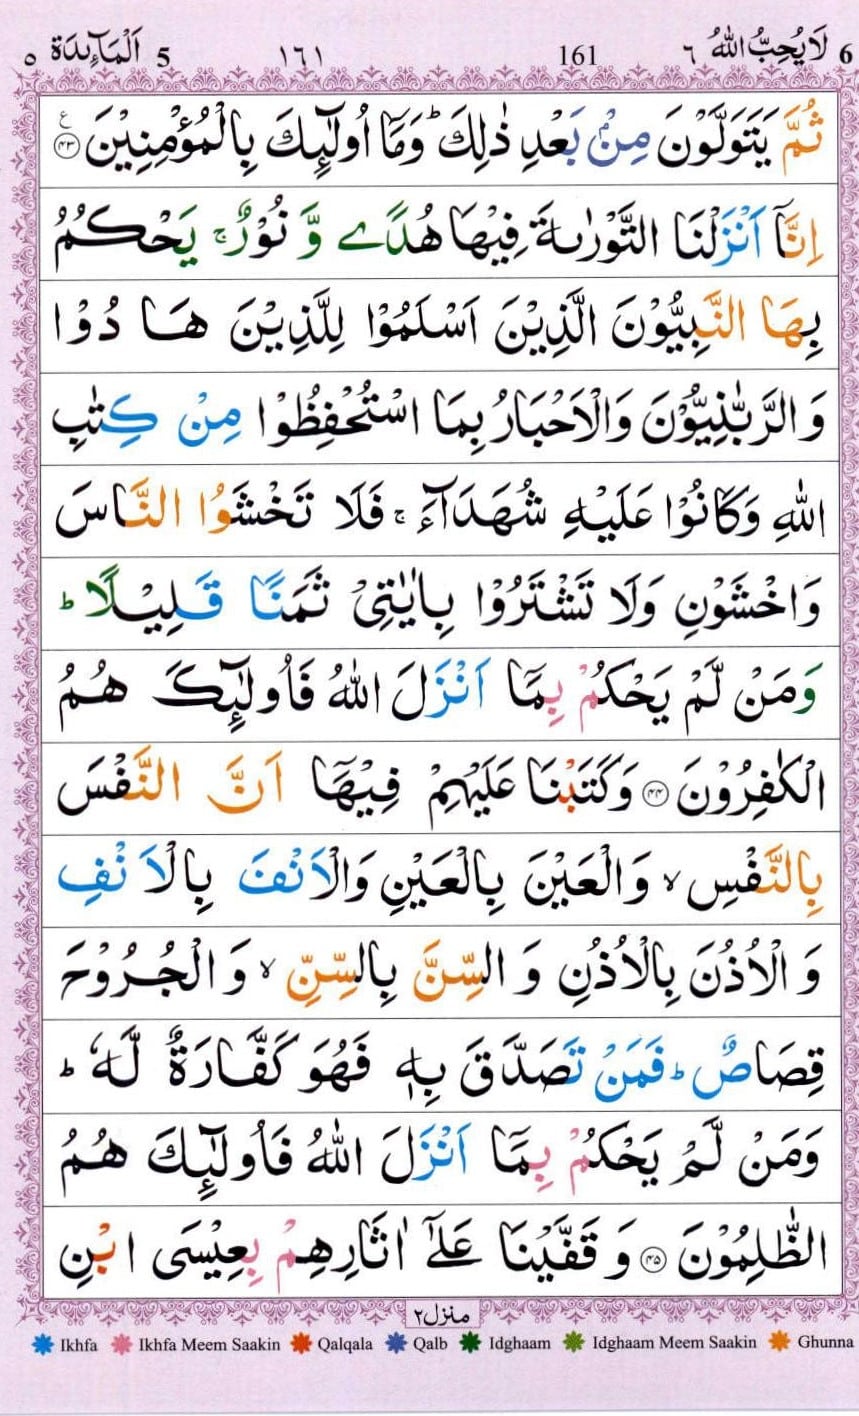 6 لَا يُحِبُّ اللّٰهُ ٦ 161 ١٦١ 5 اَلْمَآئِدَة ٥
ثُمَّ يَتَوَلَّوْنَ مِنْۢ بَعْدِ ذٰلِكَ ؕ وَمَاۤ اُولٰٓئِكَ بِالْمُؤْمِنِيْنَ ع ۴۳
اِنَّاۤ اَنْزَلْنَا التَّوْرٰىةَ فِيْهَا هُدًى وَّ نُوْرٌ ۚ يَحْكُمُ
بِهَا النَّبِيُّوْنَ الَّذِيْنَ اَسْلَمُوْا لِلَّذِيْنَ هَا دُوْا
وَالرَّبّٰنِيُّوْنَ وَالْاَحْبَارُ بِمَا اسْتُحْفِظُوْا مِنْ كِتٰبِ
اللّٰهِ وَكَانُوْا عَلَيْهِ شُهَدَآءَ ۚ فَلَا تَخْشَوُا النَّاسَ
وَاخْشَوْنِ وَلَا تَشْتَرُوْا بِاٰيٰتِيْ ثَمَنًا قَلِيْلًا ؕ
وَمَنْ لَّمْ يَحْكُمْ بِمَاۤ اَنْزَلَ اللّٰهُ فَاُولٰٓئِكَ هُمُ
الْكٰفِرُوْنَ ۴۴ وَكَتَبْنَا عَلَيْهِمْ فِيْهَاۤ اَنَّ النَّفْسَ
بِالنَّفْسِ ۙ وَالْعَيْنَ بِالْعَيْنِ وَالْاَنْفَ بِالْاَنْفِ
وَالْاُذُنَ بِالْاُذُنِ وَالسِّنَّ بِالسِّنِّ ۙ وَالْجُرُوْحَ
قِصَاصٌ ؕ فَمَنْ تَصَدَّقَ بِهٖ فَهُوَ كَفَّارَةٌ لَّهٗ ؕ
وَمَنْ لَّمْ يَحْكُمْ بِمَاۤ اَنْزَلَ اللّٰهُ فَاُولٰٓئِكَ هُمُ
الظّٰلِمُوْنَ ۴۵ وَقَفَّيْنَا عَلٰٓى اٰثَارِهِمْ بِعِيْسَى ابْنِ
منزل ٢
Ikhfa Ikhfa Meem Saakin Qalqala Qalb Idghaam Idghaam Meem Saakin Ghunna